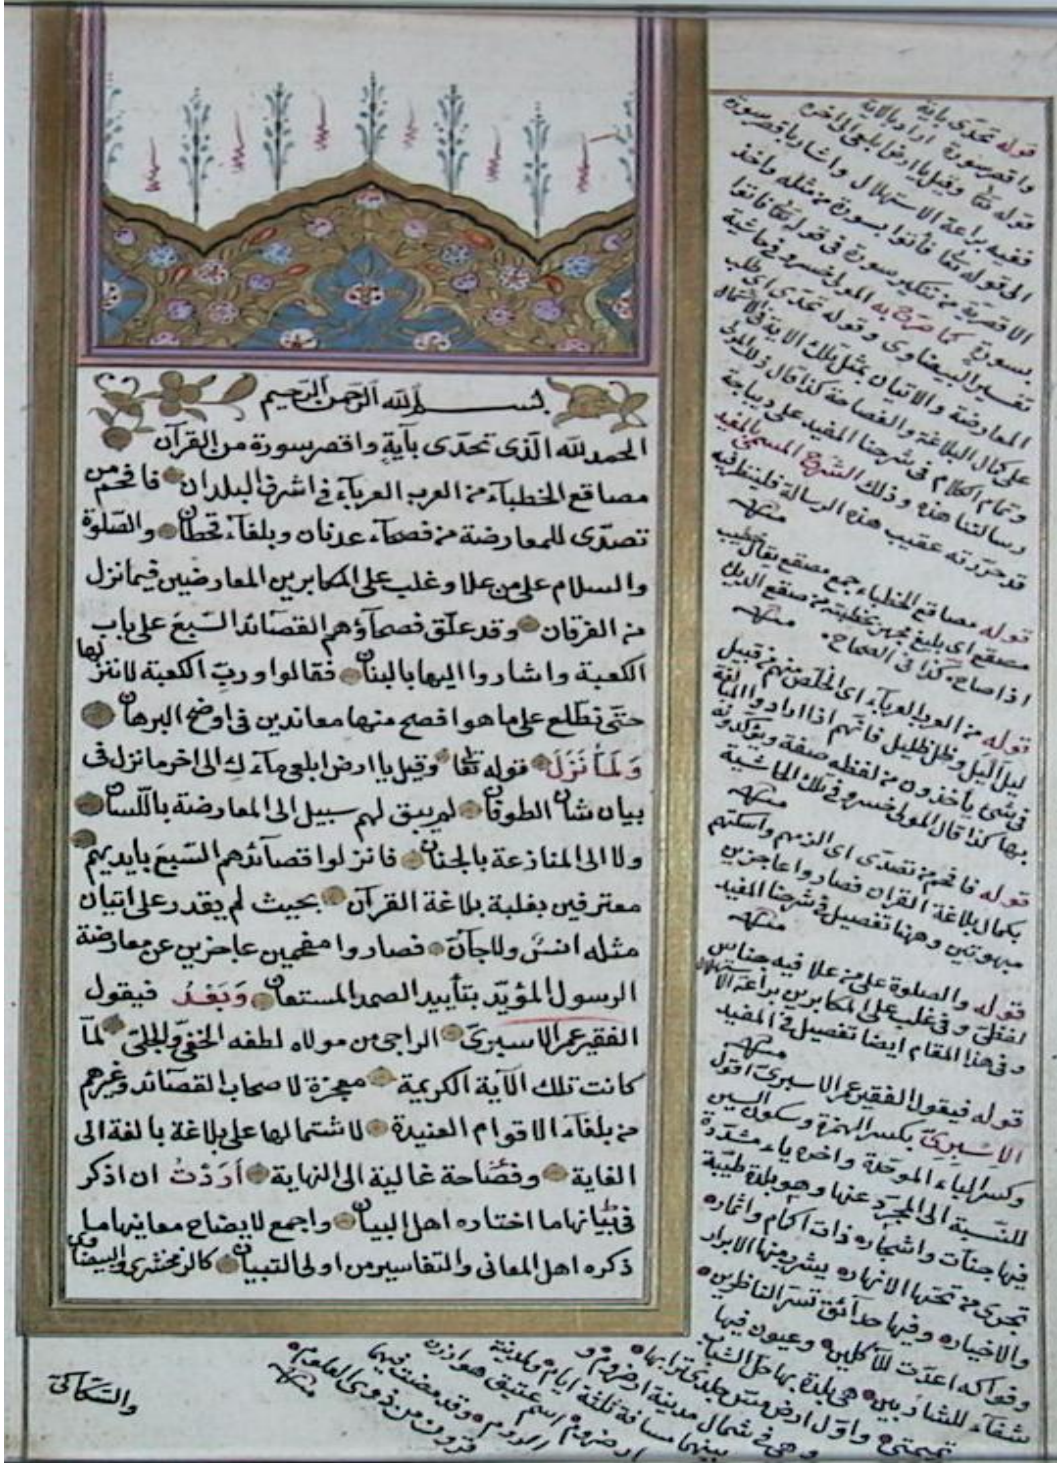 بسم الله الرحمن الرحيم
الحمد لله الذى تحدى بآية واقصر سورة من القرآن
مصاقع الخطبآء من العرب العربآء فى اشرف البلدان فافحم من
تصدى للمعارضة من فصحآء عدنان وبلغآء قحطان والصلوة
والسلام على من علا وغلب على المكابرين المعارضين فيما نزل
من الفرقان وقد علق فصحاؤهم القصائد السبع على باب
الكعبة واشاروا اليها بالبنان فقالوا ورب الكعبة لا ننزلها
حتى نطلع على ما هو افصح منها معاندين فى اوضح البرهان
ولما نزل قوله تعا وقيل يا ارض ابلعى مآءك الى اخر ما نزل فى
بيان شان الطوفان لم يبق لهم سبيل الى المعارضة باللسان
ولا الى المنازعة بالجنان فانزلوا قصائدهم السبع بايديهم
معترفين بغلبة بلاغة القرآن بحيث لم يقدر على اتيان
مثله انس ولا جآن فصاروا مفحمين عاجزين عن معارضة
الرسول المؤيد بتأييد الصمد المستعان وبعد فيقول
الفقير عمر الاسبرى الراجى من مولاه لطفه الخفى والجلى لما
كانت تلك الآية الكريمة معجزة لاصحاب القصائد وغيرهم
من بلغآء الاقوام العنيدة لاشتمالها على بلاغة بالغة الى
الغاية وفصاحة غالية الى النهاية أردت ان اذكر
فى بيانها ما اختاره اهل البيان واجمع لايضاح معانيها ما
ذكره اهل المعانى والتفاسير من اولى التبيان كالزمخشرى والبيضاوى
والسكاكى
قوله تحدى بآية اراد بالاية
قوله تعا وقيل يا ارض ابلعى الى اخره
واقصر سورة
ففيه براعة الاستهلال واشار باقصر سورة
الى قوله تعا فأتوا بسورة من مثله واخذ
الاقصرية من تنكير سورة فى قوله تعا فاتوا
بسورة كما صرح به المولى خسرو فى حاشية
تفسير البيضاوى وقوله تحدى اى طلب
المعارضة والاتيان بمثل تلك الاية فى الاشتمال
على كمال البلاغة والفصاحة كذا قال ذلك المولى
وتمام الكلام فى شرحنا المفيد على ديباجة
رسالتنا هذه وذلك الشرح المسمى بالمفيد
قد حررته عقيب هذه الرسالة فلينظر فيه
منه
قوله مصاقع الخطباء جمع مصقع يقال خطيب
مصقع اى بليغ مجهر بخطبته من صقع الديك
اذا صاح كذا فى الصحاح منه
قوله من العرب العربآء اى الخلص منهم من قبيل
ليل اليل وظل ظليل فانهم اذا ارادوا المبالغة
فى شئ يأخذون من لفظه صفة ويؤكدونه
بها كذا قال المولى خسرو فى تلك الحاشية
منه
قوله فافحم من تصدى اى الزمهم واسكتهم
بكمال بلاغة القران فصاروا عاجزين
مبهوتين وههنا تفصيل فى شرحنا المفيد
منه
قوله والصلوة على من علا فيه جناس
لفظى وفى غلب على المكابرين براعة الاستهلال
وفى هذا المقام ايضا تفصيل فى المفيد
منه
قوله فيقول الفقير عمر الاسبرى اقول
الاسبرى بكسر الهمزة وسكون السين
وكسر الباء الموحدة واخره ياء مشددة
للنسبة الى المجرد عنها وهو بلدة طيبة
فيها جنات واشجاره ذات اكمام واثماره
تجرى من تحتها الانهاره يشرب منها الابرار
والاخياره وفيها حدآئق تسر الناظرين
وفواكه اعدت للآكلين وعيون فيها
شفآء للشاربين هى بلدة بها حل الشباب
تميمتى واول ارض مس جلدى ترابها
وهى فى شمال مدينة ارضروم و
بينهما مسافة ثلثة ايام ولمدينة
ارضروم اسم عتيق هو ارزن
الروم وقد مضت فيها
قرون من ذوى العلوم
منه